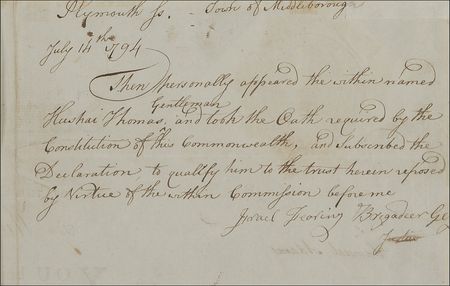 Plymouth Ss. Town of Middleborough
July 14th 1794
Then personally appeared the within named
Gentleman
Hushai Thomas, and took the Oath required by the
Constitution of this Commonwealth, and subscribed the
Declaration to qualify him to the trust herein reposed
by Virtue of the within Commission before me
Israel Fearing Brigadeer Ge